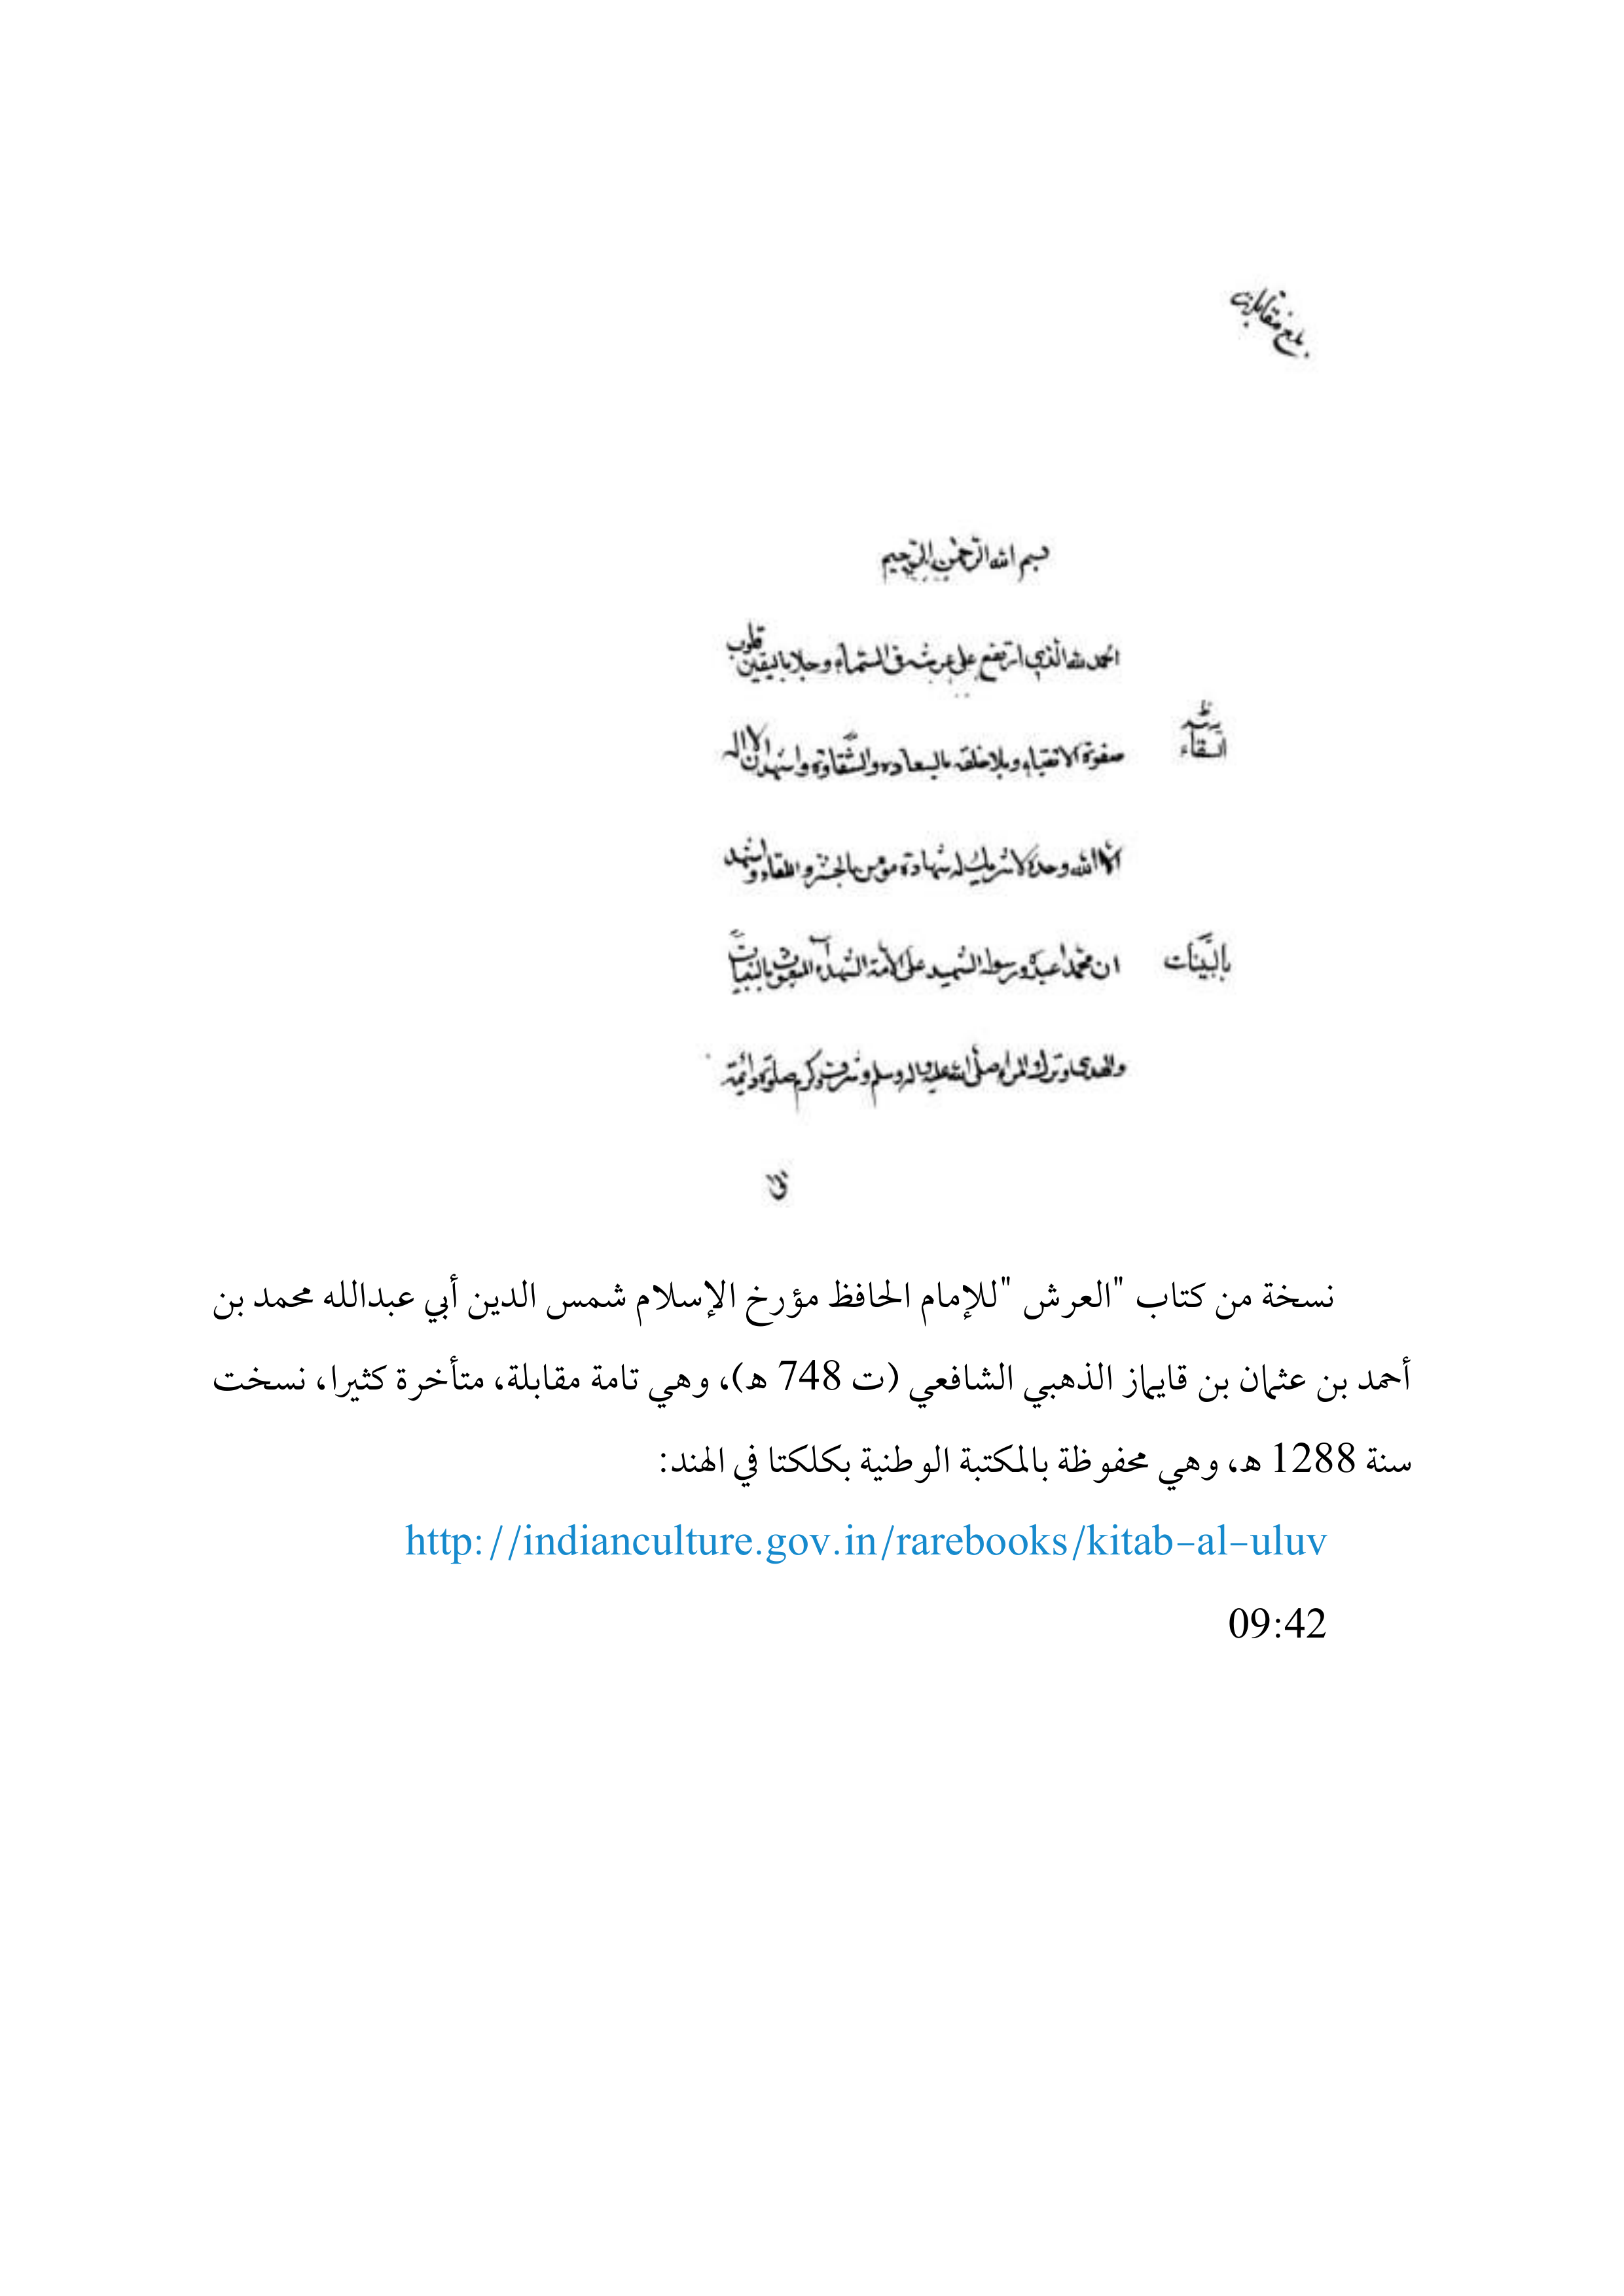 بلغ مقابلة
بسم الله الرحمن الرحيم
الحمد لله الذي ارتفع على عرشه في السماء وجلا باليقين قلوب
صفوة الاتقياء وبلا خلقه بالسعادة والشقاوة واشهد ان لا اله
الشقاء
الا الله وحده لا شريك له شهادة مؤمن بالحشر واللقاء واشهد
ان محمدا عبده ورسوله الشهيد على الامة الشهداء المبعوث بالبينات
بالبينات
والهدى وترك المراء صلى الله عليه واله وسلم وشرف وكرم صلوة دائمة
نسخة من كتاب "العرش "للإمام الحافظ مؤرخ الإسلام شمس الدين أبي عبدالله محمد بن
أحمد بن عثمان بن قايماز الذهبي الشافعي (ت 748 هـ)، وهي تامة مقابلة، متأخرة كثيرا، نسخت
سنة 1288 هـ، وهي محفوظة بالمكتبة الوطنية بكلكتا في الهند:
http://indianculture.gov.in/rarebooks/kitab-al-uluv
09:42